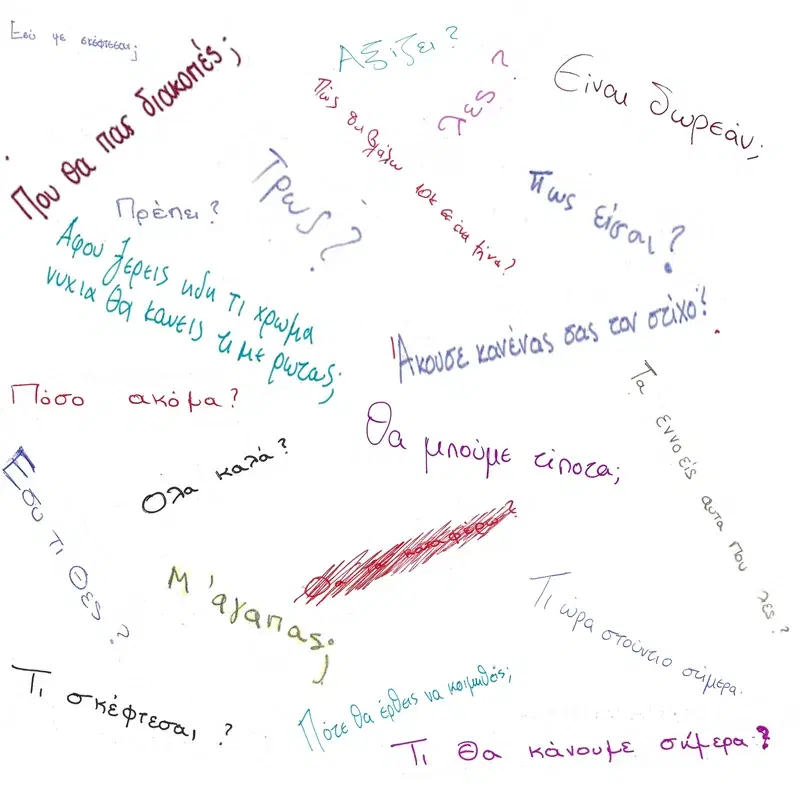 Εσύ με σκέφτεσαι;
Που θα πας διακοπές;
Αξίζει?
Τες?
Είναι δωρεάν;
Πώς θα βγάλω τον μήνα?
Τρως?
Πως είσαι?
Πρέπει?
Αφου ξερεις ηδη τι χρωμα
νυχια θα κανεις τι με ρωτας;
Άκουσε κανένας σας τον στίχο?
Πόσο ακόμα?
Θα μπούμε τίποτα;
Τα εννοείς αυτα που λες?
Όλα καλά?
Εσυ τι θες?
Θα τα καταφέρω?
Μ'άγαπας;
Τι ώρα στούντιο σήμερα.
Τι σκέφτεσαι ?
Πότε θα έρθεις να κοιμηθείς;
Τι θα κάνουμε σήμερα?